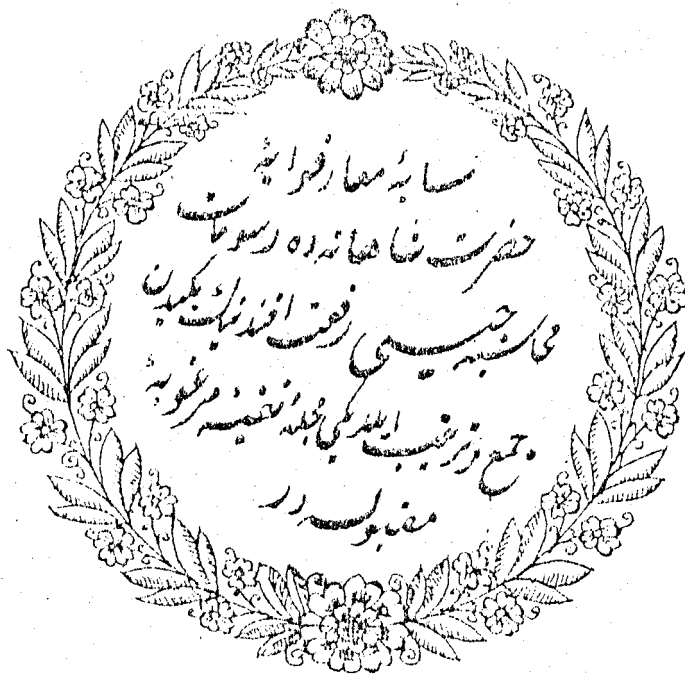 سایهٔ معارفوایهٔ
حضرت شاهانه‌ده رسومات
محاسبه‌جیسی رفعت افندینك یکیدن
جمع و ترتیب ایلدیکی مجلهٔ نفیسهٔ مرغوبهٔ
مقبوله‌در